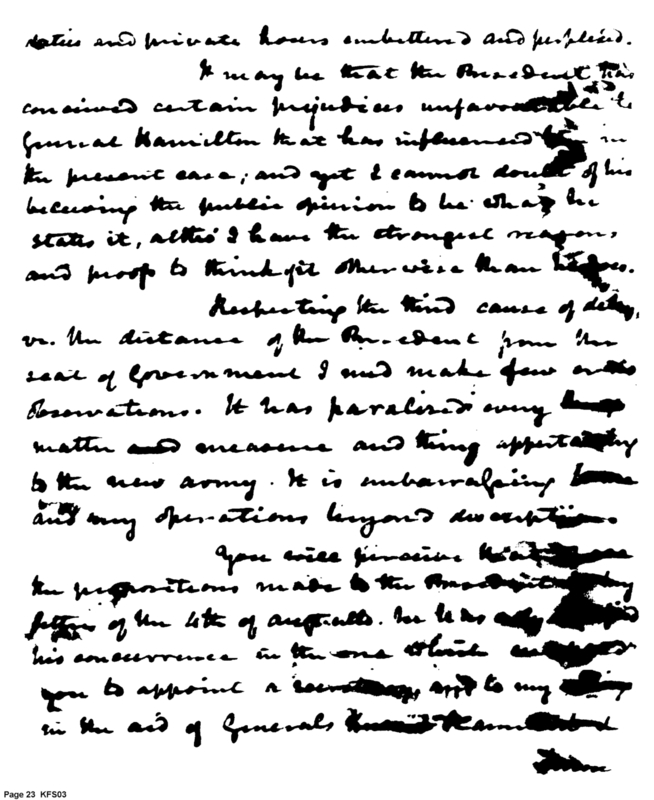 duties and private hours embittered and perplexed.
It may be that the President has
conceived certain prejudices unfavourable to
General Hamilton that has influenced him in
the present case; and yet I cannot doubt of his
believing the public opinion to be what he
states it, altho' I have the strongest reasons
and proofs to think it otherwise than he does.
Respecting the third cause of delay,
vz. the distance of the President from the
seat of Government I need make few or no
observations. It has paralised every
matter and measure and thing appertaining
to the new army. It is embarrassing
and my operations beyond description.
You will perceive that
the propositions made to the President by my
letter of the 4th of Augt. ulto. he has only
his concurrence in the one which
you to appoint a secretary, and to my
in the aid of Generals
Page 23 KFS03